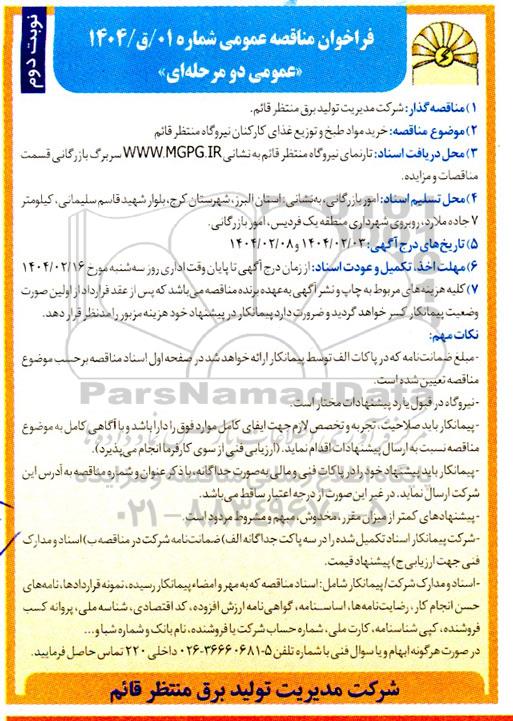 نوبت دوم
فراخوان مناقصه عمومی شماره ۰۱/ق/۱۴۰۴
«عمومی دو مرحله‌ای»
۱) مناقصه گذار: شرکت مدیریت تولید برق منتظر قائم.
۲) موضوع مناقصه: خرید مواد طبخ و توزیع غذای کارکنان نیروگاه منتظر قائم
۳) محل دریافت اسناد: تارنمای نیروگاه منتظر قائم به نشانی WWW.MGPG.IR سربرگ بازرگانی قسمت
مناقصات و مزایده.
۴) محل تسلیم اسناد: امور بازرگانی، به‌نشانی: استان البرز، شهرستان کرج، بلوار شهید قاسم سلیمانی، کیلومتر
۷ جاده ملارد، روبروی شهرداری منطقه یک فردیس، امور بازرگانی.
۵) تاریخ‌های درج آگهی: ۱۴۰۴/۰۲/۰۳ و ۱۴۰۴/۰۲/۰۸
۶) مهلت اخذ، تکمیل و عودت اسناد: از زمان درج آگهی تا پایان وقت اداری روز سه‌شنبه مورخ ۱۴۰۴/۰۲/۱۶
۷) کلیه هزینه‌های مربوط به چاپ و نشر آگهی به عهده برنده مناقصه می‌باشد که پس از عقد قرارداد از اولین صورت
وضعیت پیمانکار کسر خواهد گردید و ضرورت دارد پیمانکار در پیشنهاد خود هزینه مزبور را مدنظر قرار دهد.
نکات مهم:
-مبلغ ضمانت‌نامه که در پاکات الف توسط پیمانکار ارائه خواهد شد در صفحه اول اسناد مناقصه برحسب موضوع
مناقصه تعیین شده است.
-نیروگاه در قبول یا رد پیشنهادات مختار است.
-پیمانکار باید صلاحیت، تجربه و تخصص لازم جهت ایفای کامل موارد فوق را دارا باشد و با آگاهی کامل به موضوع
مناقصه نسبت به ارسال پیشنهادات اقدام نماید. (ارزیابی فنی از سوی کارفرما انجام می‌پذیرد).
-پیمانکار باید پیشنهاد خود را در پاکات فنی و مالی به‌صورت جداگانه، با ذکر عنوان و شماره مناقصه به آدرس این
شرکت ارسال نماید. در غیر این صورت از درجه اعتبار ساقط می‌باشد.
-پیشنهادهای کمتر از میزان مقرر، مخدوش، مبهم و مشروط مردود است.
-شرکت پیمانکار اسناد تکمیل شده را در سه پاکت جداگانه الف) ضمانت‌نامه شرکت در مناقصه ب) اسناد و مدارک
فنی جهت ارزیابی ج) پیشنهاد قیمت.
-اسناد و مدارک شرکت/ پیمانکار شامل: اسناد مناقصه که به مهر و امضاء پیمانکار رسیده، نمونه قراردادها، نامه‌های
حسن انجام کار، رضایت‌نامه‌ها، اساسنامه، گواهی‌نامه ارزش افزوده، کد اقتصادی، شناسه ملی، پروانه کسب
فروشنده، کپی شناسنامه، کارت ملی، شماره حساب شرکت یا فروشنده، نام بانک و شماره شبا و...
در صورت هرگونه ابهام و یا سوال فنی با شماره تلفن ۵-۳۶۶۶۰۶۸۱-۰۲۶ داخلی ۲۲۰ تماس حاصل فرمایید.
شرکت مدیریت تولید برق منتظر قائم
ParsNamadData
۰۲۱-۸۸۳۴۹۶۷۰-۵